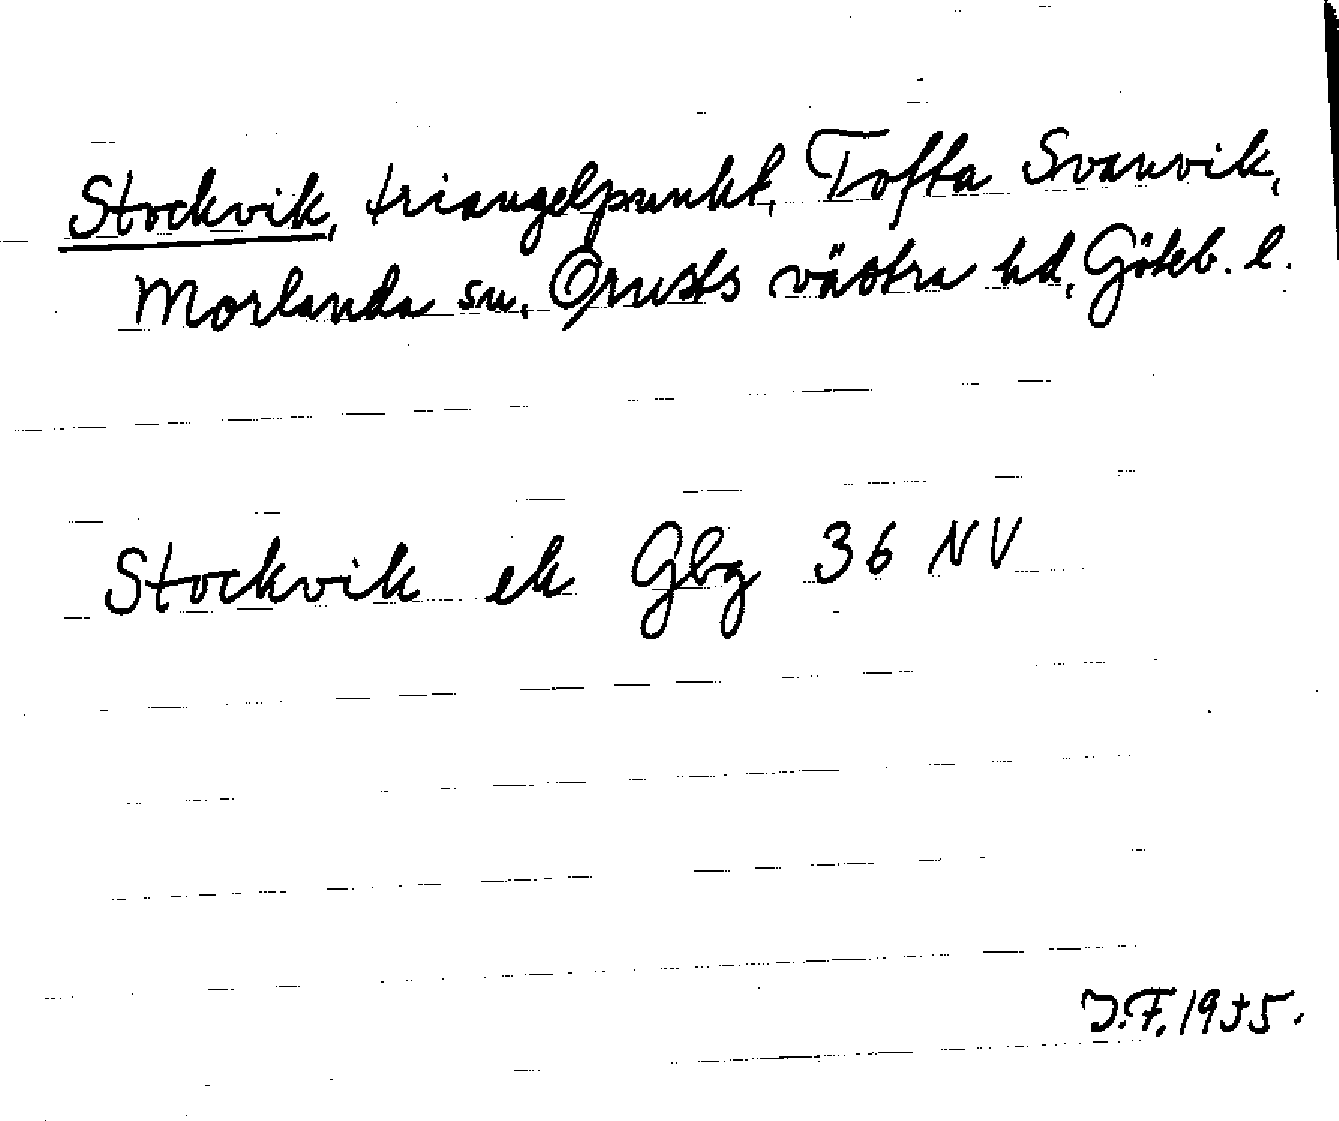 Stockvik, triangelpunkt, Tofta Svanvik,
Morlanda sn, Orusts västra hd, Göteb. l.
Stockvik ek Gbg 36 NV
J.F. 1935.